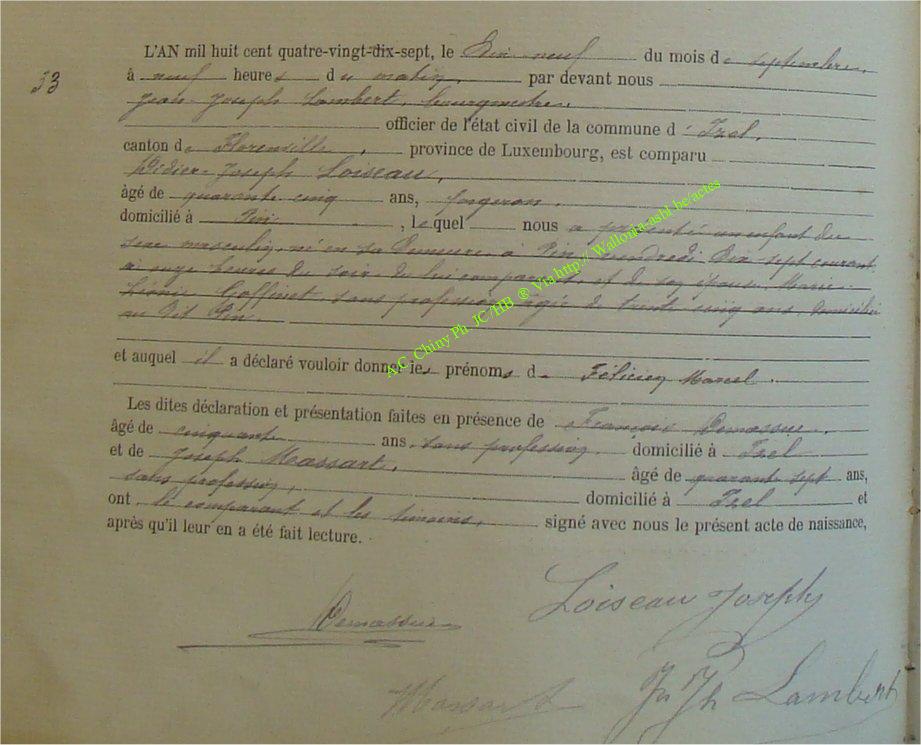 53
L'AN mil huit cent quatre-vingt-dix-sept, le Dix-neuf du mois de septembre,
à neuf heures du matin, par devant nous
Jean-Joseph Lambert, bourgmestre,
officier de l'état civil de la commune d'Izel,
canton de Florenville, province de Luxembourg, est comparu
Didier-Joseph Loiseau,
âgé de quarante cinq ans, forgeron,
domicilié à Pin, lequel nous a présenté un enfant du
sexe masculin, né en sa Demeure à Pin, vendredi Dix sept courant,
à onze heures du soir de lui comparant et de son épouse Marie
Léonie Goffinet, sans profession, âgée de trente cinq ans, Domiciliée
au Dit Pin.
et auquel il a déclaré vouloir donner les prénoms de Félicien Marcel.
Les dites déclaration et présentation faites en présence de François Demassue,
âgé de cinquante ans, sans profession, domicilié à Izel
et de Joseph Massart, âgé de quarante sept ans,
sans profession, domicilié à Izel et
ont le comparant et les témoins, signé avec nous le présent acte de naissance,
après qu'il leur en a été fait lecture.
Loiseau Joseph
Demassue
Massart
Jn Jh Lambert
A.G. Chiny Ph JC/HB ® Via http:// Wallonia-asbl.be/actes